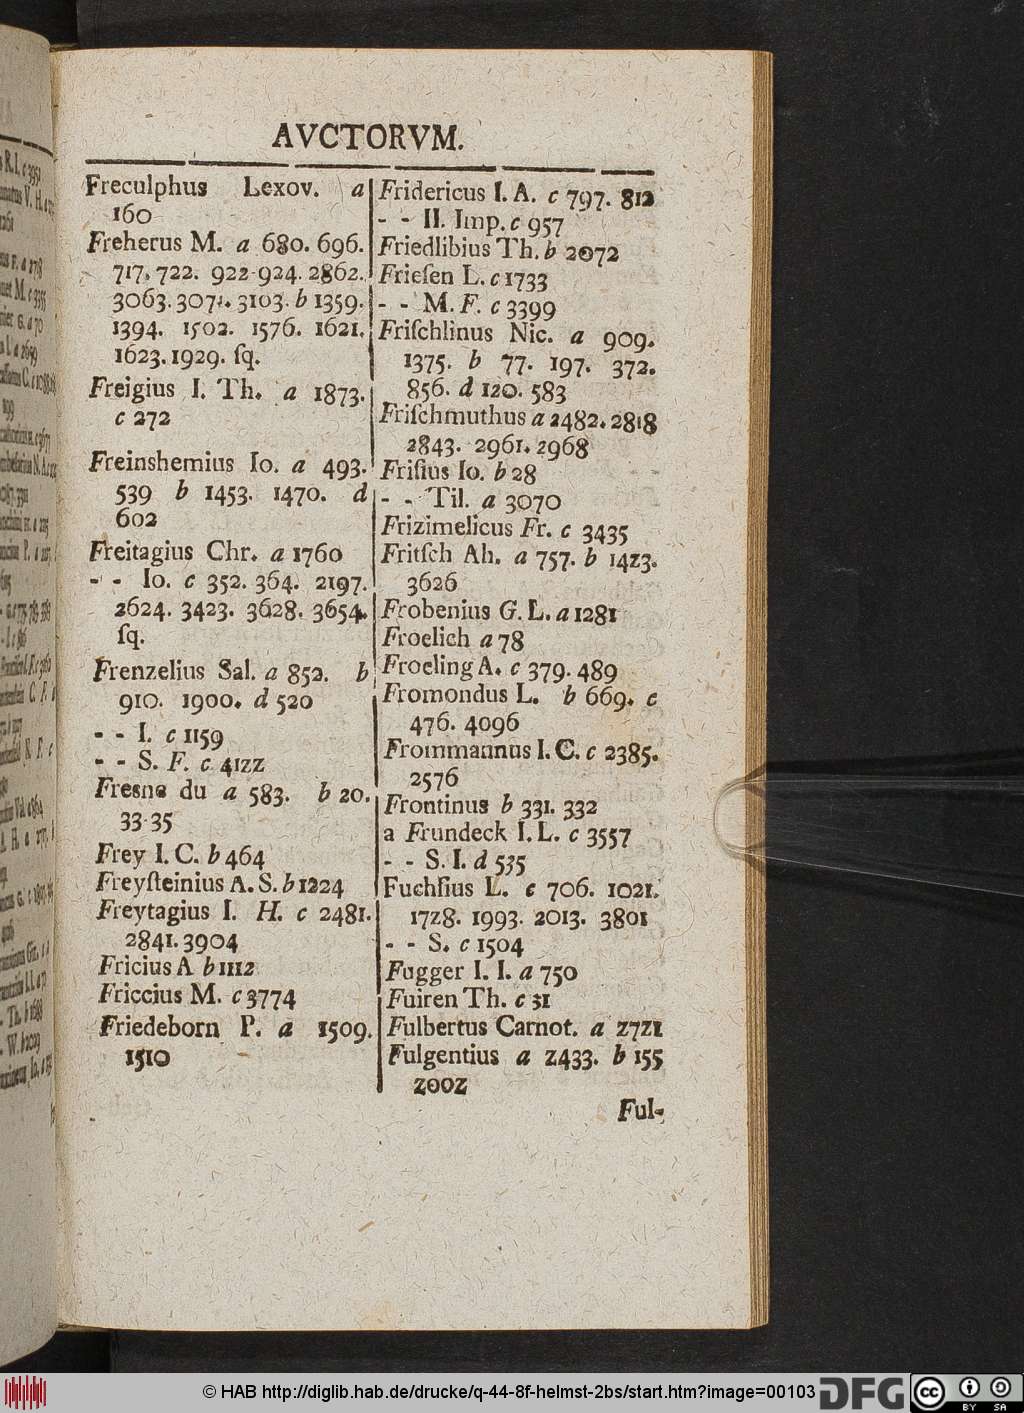 AVCTORVM.
Freculphus Lexov. a
160
Freherus M. a 680. 696.
717. 722. 922-924. 2862.
3063. 3071. 3103. b 1359.
1394. 1502. 1576. 1621.
1623. 1929. ſq.
Freigius I. Th. a 1873.
c 272
Freinshemius Io. a 493.
539 b 1453. 1470. d
602
Freitagius Chr. a 1760
- - Io. c 352. 364. 2197.
2624. 3423. 3628. 3654.
ſq.
Frenzelius Sal. a 852. b
910. 1900. d 520
- - I. c 1159
- - S. F. c 4122
Fresne du a 583. b 20.
33-35
Frey I. C. b 464
Freyſteinius A. S. b 1224
Freytagius I. H. c 2481.
2841. 3904
Fricius A b 1112
Friccius M. c 3774
Friedeborn P. a 1509.
1510
Fridericus I. A. c 797. 812
- - II. Imp. c 957
Friedlibius Th. b 2072
Frieſen L. c 1733
- - M. F. c 3399
Friſchlinus Nic. a 909.
1375. b 77. 197. 372.
856. d 120. 583
Friſchmuthus a 2482. 2818
2843. 2961. 2968
Friſius Io. b 28
- - Til. a 3070
Frizimelicus Fr. c 3435
Fritſch Ah. a 757. b 1423.
3626
Frobenius G. L. a 1281
Froelich a 78
Froeling A. c 379. 489
Fromondus L. b 669. c
476. 4096
Frommannus I. C. c 2385.
2576
Frontinus b 331. 332
a Frundeck I. L. c 3557
- - S. I. d 535
Fuchſius L. c 706. 1021.
1728. 1993. 2013. 3801
- - S. c 1504
Fugger I. I. a 750
Fuiren Th. c 31
Fulbertus Carnot. a 2721
Fulgentius a 2433. b 155
2002
Ful-
© HAB http://diglib.hab.de/drucke/q-44-8f-helmst-2bs/start.htm?image=00103
DFG
cc
BY SA